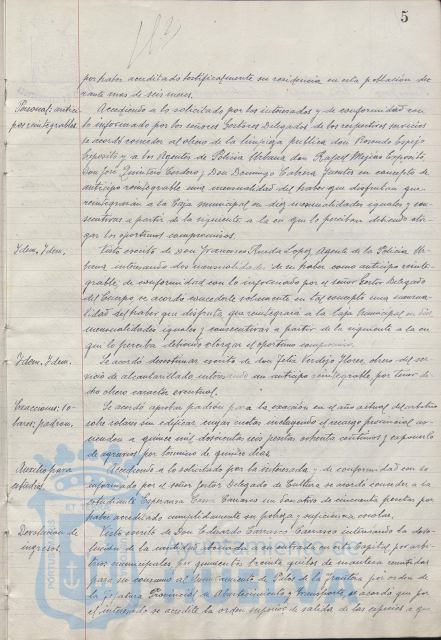 5
por haber acreditado testificalmente su residencia en esta población du-
rante mas de seis meses.
Personal: antici-
pos reintegrables.
Accediendo a lo solicitado por los interesados y de conformidad con
lo informado por los señores Gestores Delegados de los respectivos servicios
se acordó conceder al obrero de la limpieza pública don Rosendo Espejo
Expósito y a los Agentes de Policía Urbana don Rafael Mejías Expósito,
Don José Quintero Cordero y Don Domingo Cabrera Fuentes en concepto de
anticipo reintegrable una mensualidad del haber que disfrutan que
reintegrarán a la Caja municipal en diez mensualidades iguales y con-
secutivas a partir de la siguiente a la en que lo perciban debiendo otor-
gar los oportunos compromisos.
Idem. Idem.
Visto escrito de Don Francisco Rueda Lopez, Agente de la Policía Ur-
bana interesando dos mensualidades de su haber como anticipo reinte-
grable; de conformidad con lo informado por el señor Gestor Delegado
del Cuerpo se acordó concederle solamente en tal concepto una mensua-
lidad del haber que disfruta, que reintegrará a la Caja Municipal en diez
mensualidades iguales y consecutivas a partir de la siguiente a la en
que lo perciba debiendo otorgar el oportuno compromiso.
Idem. Idem.
Se acordó desestimar escrito de don Felix Verdejo Flores, obrero del ser-
vicio de alcantarillado interesando un anticipo reintegrable por tener di-
cho obrero caracter eventual.
Exacciones: so-
lares: padron.
Se acordó aprobar padrón para la exacción en el año actual del arbitrio
sobre solares sin edificar cuyas cuotas incluyendo el recargo provincial as-
cienden a quince mil doscientas seis pesetas ochenta céntimos y exponerlo
de agravios por termino de quince días.
Auxilio para
estudios.
Accediendo a lo solicitado por la interesada y de conformidad con lo
informado por el señor Gestor Delegado de Cultura se acordó conceder a la
estudiante Esperanza Carrasco un donativo de cincuenta pesetas por
haber acreditado cumplidamente su pobreza y suficiencia escolar.
Devolución de
ingresos.
Visto escrito de Don Eduardo Carrasco Carrasco interesando la devo-
lución de la cantidad en esta Capital por arbi-
trios municipales por quinientos treinta quilos de manteca remitidos
para su consumo al Ayuntamiento de Palos de la Frontera por orden de
la Jefatura Provincial de Abastecimiento y Transporte, se acordó que por
el interesado se acredite la orden superior de salida de las especies a que
Ayuntamiento de